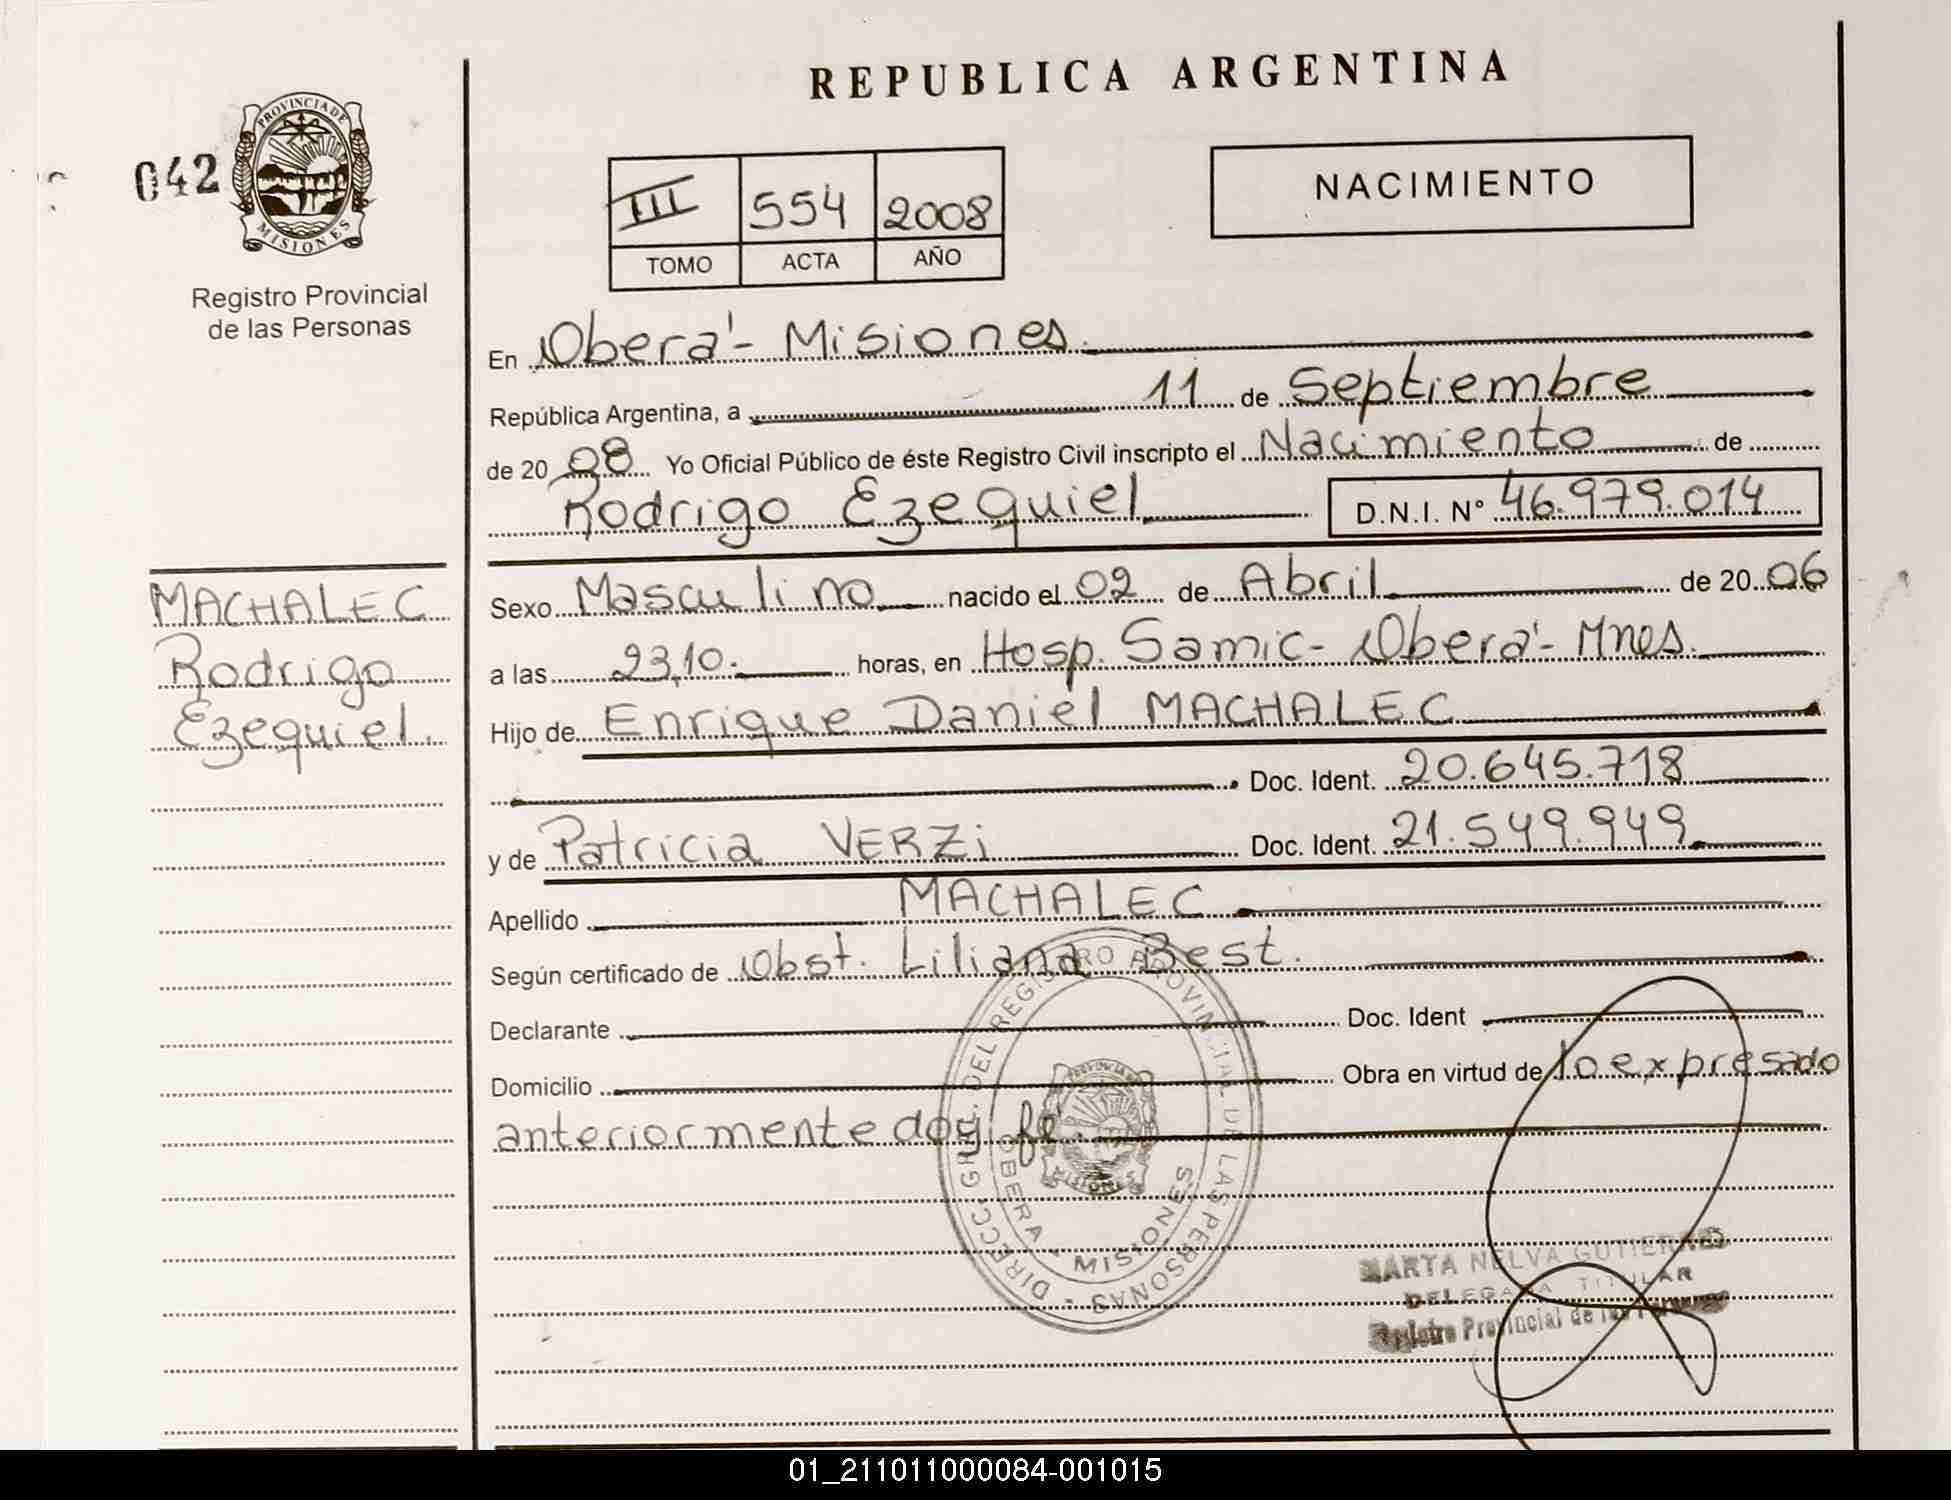 REPUBLICA ARGENTINA
042
PROVINCIA DE
MISIONES
Registro Provincial
de las Personas
III 554 2008
TOMO ACTA AÑO
NACIMIENTO
En Oberá - Misiones.
República Argentina, a 11 de Septiembre
de 20 08 Yo Oficial Público de éste Registro Civil inscripto el Nacimiento de
Rodrigo Ezequiel D.N.I. Nº 46.979.014
MACHALEC
Rodrigo
Ezequiel.
Sexo Masculino nacido el 02 de Abril de 20 06
a las 23,10. horas, en Hosp. Samic - Oberá - Mnes.
Hijo de Enrique Daniel MACHALEC
Doc. Ident. 20.645.718
y de Patricia VERZi Doc. Ident. 21.549.949
Apellido MACHALEC
Según certificado de Obst. Liliana Best.
Declarante Doc. Ident
Domicilio Obra en virtud de lo expresado
anteriormente doy fe.
DIRECC. GRAL. DEL REGISTRO PROVINCIAL DE LAS PERSONAS
OBERA - MISIONES
MARTA NELVA GUTIERREZ
DELEGADA TITULAR
Registro Provincial de las Personas
01_211011000084-001015